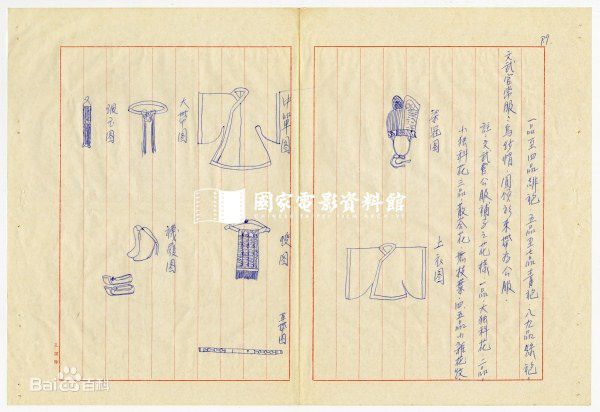 89
一品至四品緋袍 五品至七品青袍 八九品綠袍.
文武官常服：烏紗帽 圓領衫 束帶為公服.
註：文武官公服補子之花樣 一品：大独科花 二品
小独科花 三品 散答花 無枝葉 四五品小雜花紋.
梁冠圖
上衣圖
中單圖
綬圖
革帶圖
大帶圖
佩玉圖
襪履圖
國家電影資料館
Bai百科